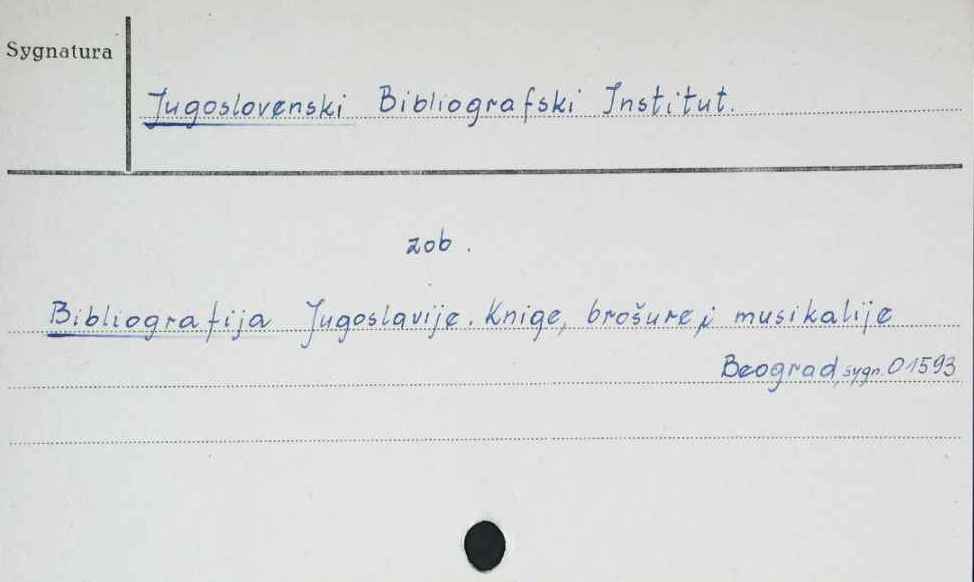 Sygnatura
Jugoslovenski Bibliografski Institut.
zob.
Bibliografija Jugoslavije. Knige, brošure i musikalije
Beograd, sygn. 01593